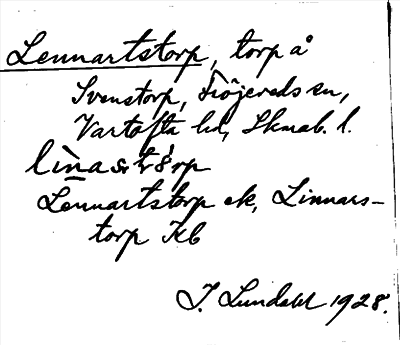 Lennartstorp, torp å
Svenstorp, Fröjereds sn,
Vartofta hd, Skarab. l.
Lennartstorp ek, Linnars-
torp Kb
J. Lundahl 1928.